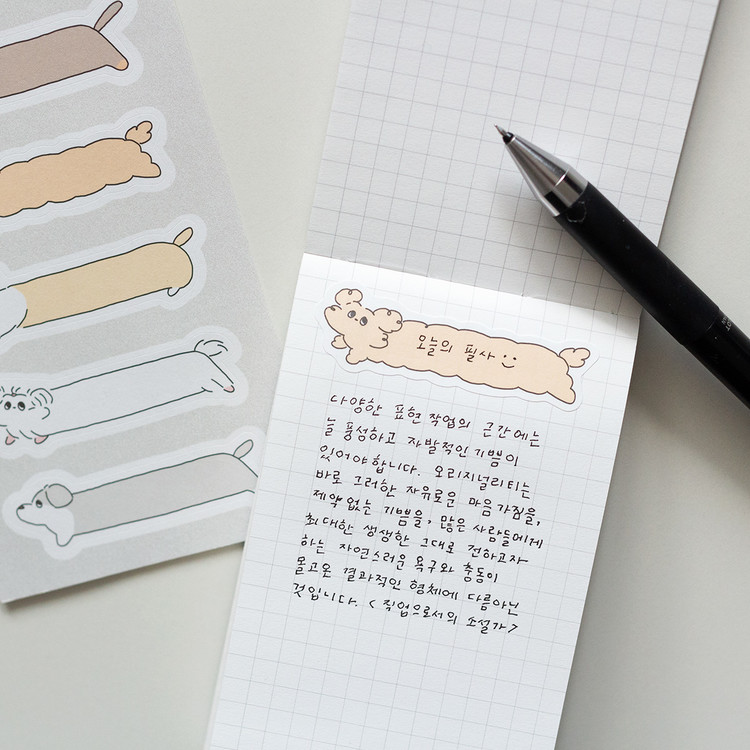 오늘의 필사
다양한 표현 작업의 근간에는
늘 풍성하고 자발적인 기쁨이
있어야 합니다. 오리지널리티는
바로 그러한 자유로운 마음가짐을,
제약없는 기쁨을, 많은 사람들에게
최대한 생생한 그대로 전하고자
하는 자연스러운 욕구와 충동이
몰고온 결과적인 형체에 다름아닌
것입니다. <직업으로서의 소설가>